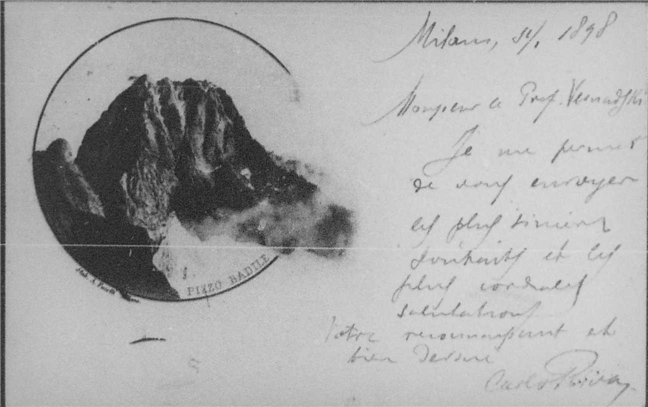 PIZZO BADILE
Milano, 1898
Monsieur le Prof. Vernadski
Je me permet
de vous envoyer
les plus sincères
souhaits et les
plus cordiales
salutations
Votre reconnaissant et
bien
Carlo Riva